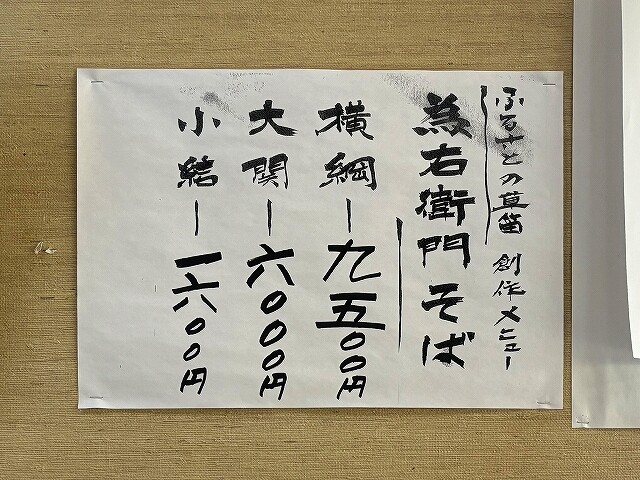 ふるさとの草笛 創作メニュー
為右衛門そば
横綱ー九五〇〇円
大関ー六〇〇〇円
小結ー一六〇〇円